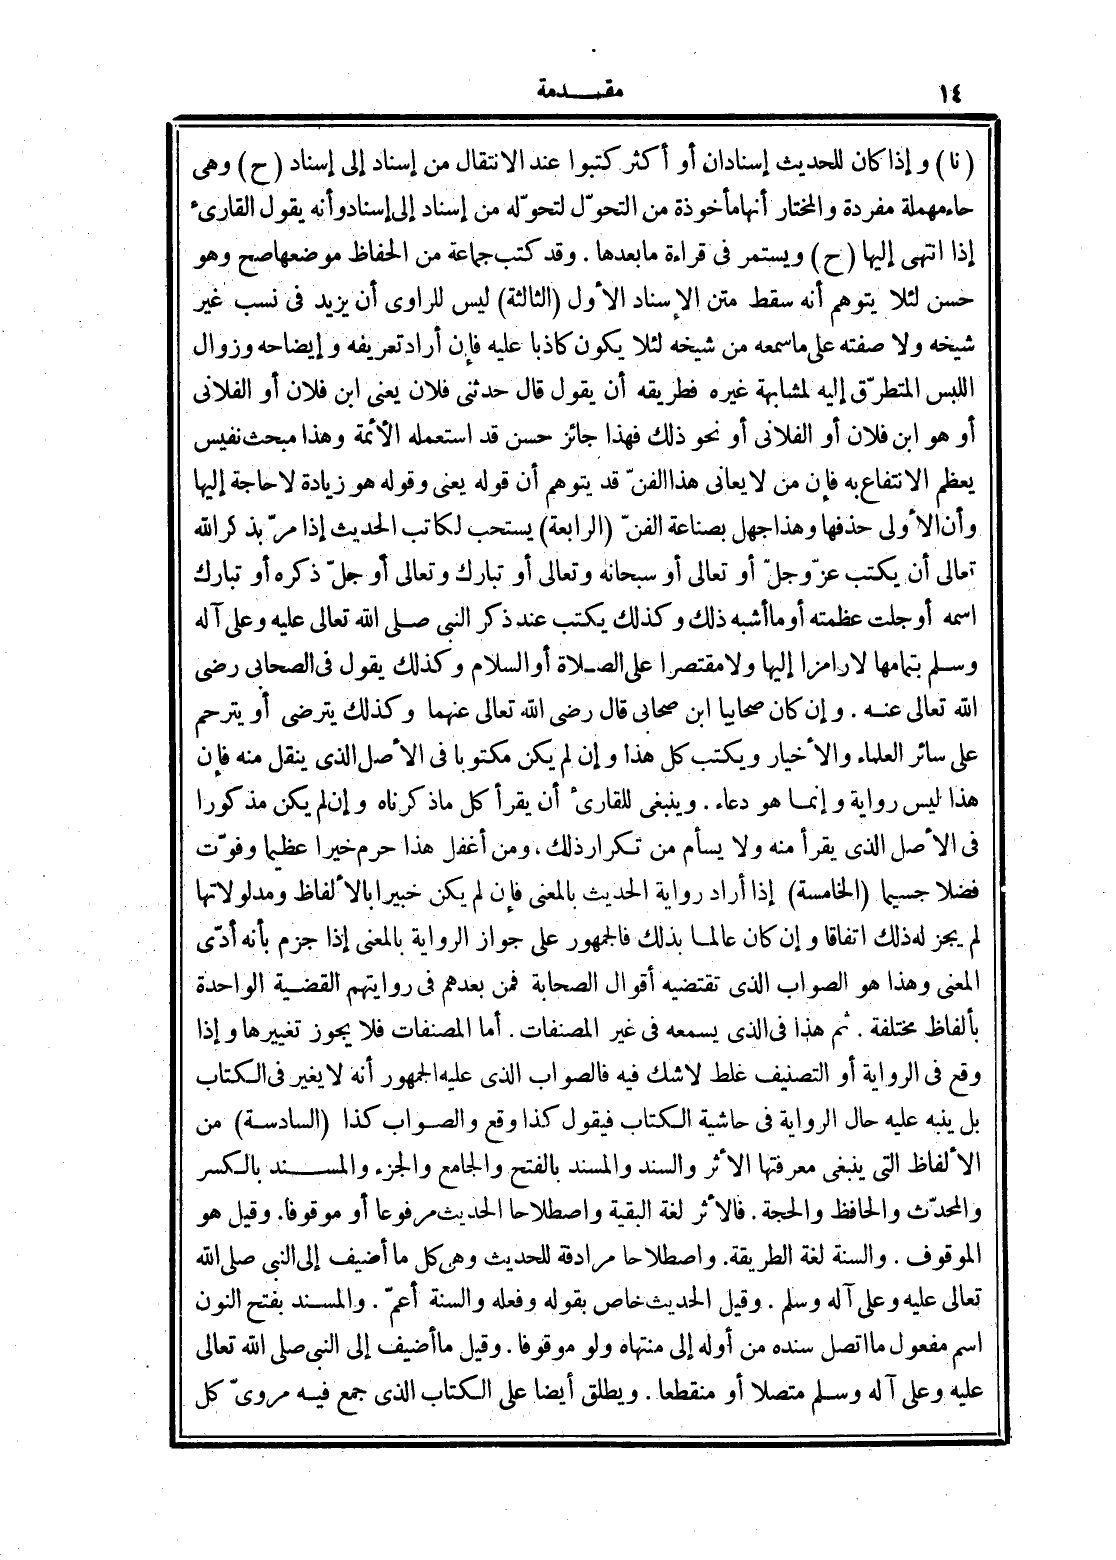 ١٤
مقدمة
(نا) وإذا كان للحديث إسنادان أو أكثر كتبوا عند الانتقال من إسناد إلى إسناد (ح) وهى
حاء مهملة مفردة والمختار أنها مأخوذة من التحوّل لتحوّله من إسناد إلى إسناد وأنه يقول القارىء
إذا انتهى إليها (ح) ويستمر فى قراءة ما بعدها . وقد كتب جماعة من الحفاظ موضعها صح وهو
حسن لئلا يتوهم أنه سقط متن الإسناد الأول (الثالثة) ليس للراوى أن يزيد فى نسب غير
شيخه ولا صفته على ما سمعه من شيخه لئلا يكون كاذبا عليه فإن أراد تعريفه وإيضاحه وزوال
اللبس المتطرّق إليه لمشابهة غيره فطريقه أن يقول قال حدثنى فلان يعنى ابن فلان أو الفلانى
أو هو ابن فلان أو الفلانى أو نحو ذلك فهذا جائز حسن قد استعمله الأئمة وهذا مبحث نفيس
يعظم الانتفاع به فإن من لا يعانى هذا الفنّ قد يتوهم أن قوله يعنى وقوله هو زيادة لا حاجة إليها
وأن الأولى حذفها وهذا جهل بصناعة الفنّ (الرابعة) يستحب لكاتب الحديث إذا مرّ بذكر الله
تعالى أن يكتب عزّ وجلّ أو تعالى أو سبحانه وتعالى أو تبارك وتعالى أو جلّ ذكره أو تبارك
اسمه أو جلت عظمته أو ما أشبه ذلك وكذلك يكتب عند ذكر النبى صلى الله تعالى عليه وعلى آله
وسلم بتمامها لا رامزا إليها ولا مقتصرا على الصلاة أو السلام وكذلك يقول فى الصحابى رضى
الله تعالى عنه . وإن كان صحابيا ابن صحابى قال رضى الله تعالى عنهما وكذلك يترضى أو يترحم
على سائر العلماء والأخيار ويكتب كل هذا وإن لم يكن مكتوبا فى الأصل الذى ينقل منه فإن
هذا ليس رواية وإنما هو دعاء . وينبغى للقارىء أن يقرأ كل ما ذكرناه وإن لم يكن مذكورا
فى الأصل الذى يقرأ منه ولا يسأم من تكرار ذلك، ومن أغفل هذا حرم خيرا عظيما وفوّت
فضلا جسيما (الخامسة) إذا أراد رواية الحديث بالمعنى فإن لم يكن خبيرا بالألفاظ ومدلولاتها
لم يجز له ذلك اتفاقا وإن كان عالما بذلك فالجمهور على جواز الرواية بالمعنى إذا جزم بأنه أدّى
المعنى وهذا هو الصواب الذى تقتضيه أقوال الصحابة فمن بعدهم فى روايتهم القضية الواحدة
بألفاظ مختلفة . ثم هذا فى الذى يسمعه فى غير المصنفات . أما المصنفات فلا يجوز تغييرها وإذا
وقع فى الرواية أو التصنيف غلط لا شك فيه فالصواب الذى عليه الجمهور أنه لا يغير فى الكتاب
بل ينبه عليه حال الرواية فى حاشية الكتاب فيقول كذا وقع والصواب كذا (السادسة) من
الألفاظ التى ينبغى معرفتها الأثر والسند والمسند بالفتح والجامع والجزء والمسند بالكسر
والمحدّث والحافظ والحجة . فالأثر لغة البقية واصطلاحا الحديث مرفوعا أو موقوفا. وقيل هو
الموقوف . والسنة لغة الطريقة. واصطلاحا مرادفة للحديث وهى كل ما أضيف إلى النبى صلى الله
تعالى عليه وعلى آله وسلم . وقيل الحديث خاص بقوله وفعله والسنة أعمّ . والمسند بفتح النون
اسم مفعول ما اتصل سنده من أوله إلى منتهاه ولو موقوفا . وقيل ما أضيف إلى النبى صلى الله تعالى
عليه وعلى آله وسلم متصلا أو منقطعا . ويطلق أيضا على الكتاب الذى جمع فيه مروىّ كل